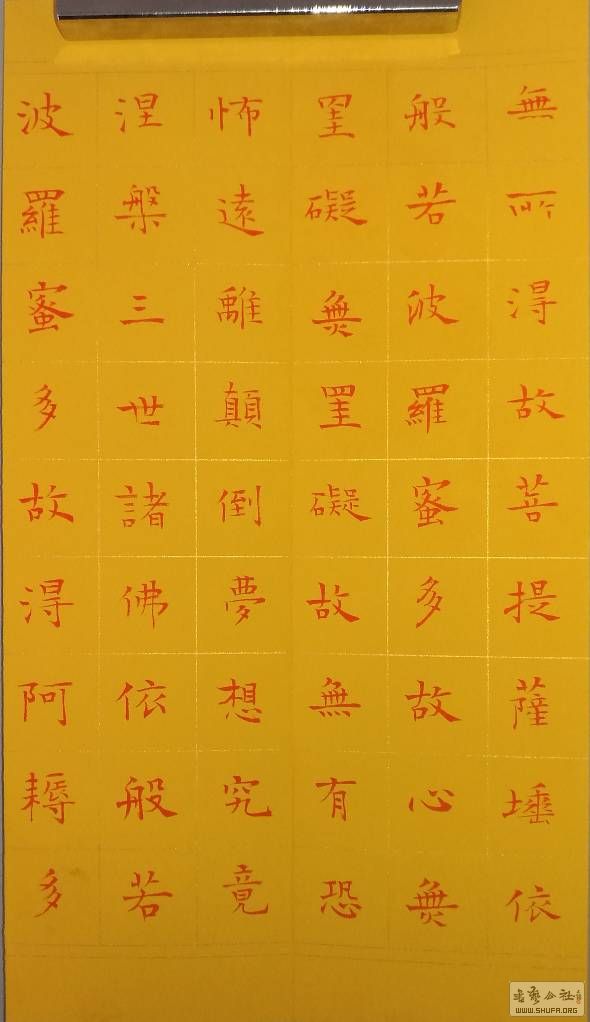 無所得故菩提薩埵依
般若波羅蜜多故心無
罣礙無罣礙故無有恐
怖遠離顛倒夢想究竟
涅槃三世諸佛依般若
波羅蜜多故得阿耨多
WWW.SHUFA.ORG